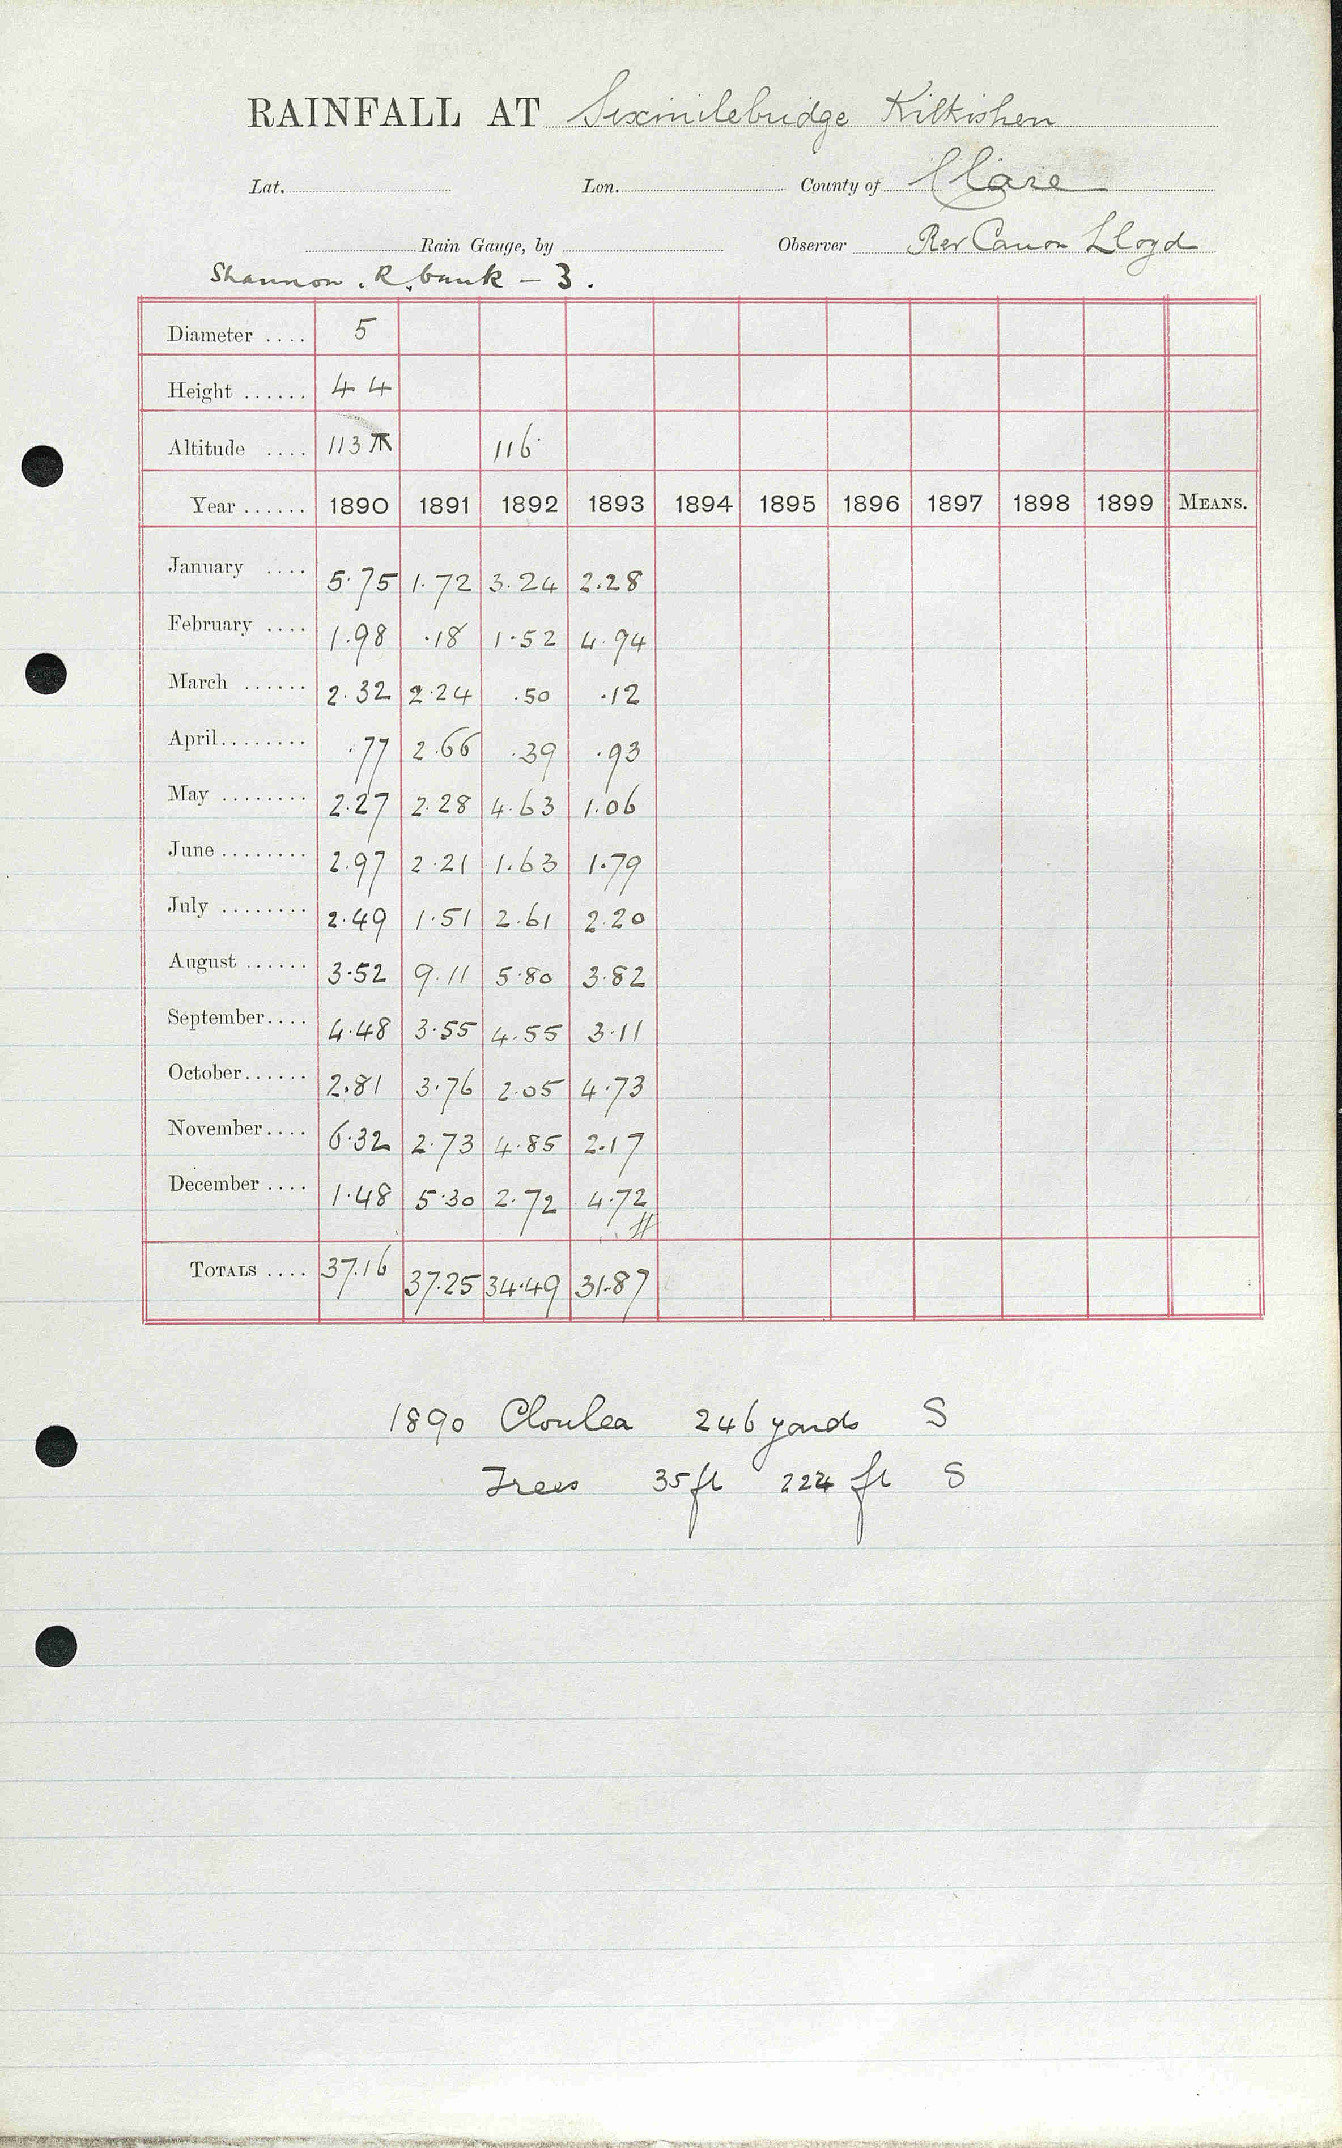 RAINFALL AT Sixmilebridge Kilkishen
Lat. Lon. County of Clare
Rain Gauge, by Observer Rev Canon Lloyd
Shannon. R. bank - 3.
Diameter .... 5
Height ...... 4 4
Altitude .... 113 116
Year ...... 1890 1891 1892 1893 1894 1895 1896 1897 1898 1899 MEANS.
January .... 5.75 1.72 3.24 2.28
February .... 1.98 .18 1.52 4.94
March ...... 2.32 2.24 .50 .12
April ........ .77 2.66 .39 .93
May ........ 2.27 2.28 4.63 1.06
June ........ 2.97 2.21 1.63 1.79
July ........ 2.49 1.51 2.61 2.20
August ...... 3.52 9.11 5.80 3.82
September .... 4.48 3.55 4.55 3.11
October ...... 2.81 3.76 2.05 4.73
November .... 6.32 2.73 4.85 2.17
December .... 1.48 5.30 2.72 4.72
TOTALS .... 37.16 37.25 34.49 31.87
1890 Clonlea 246 yards S
Trees 35 ft 224 ft S